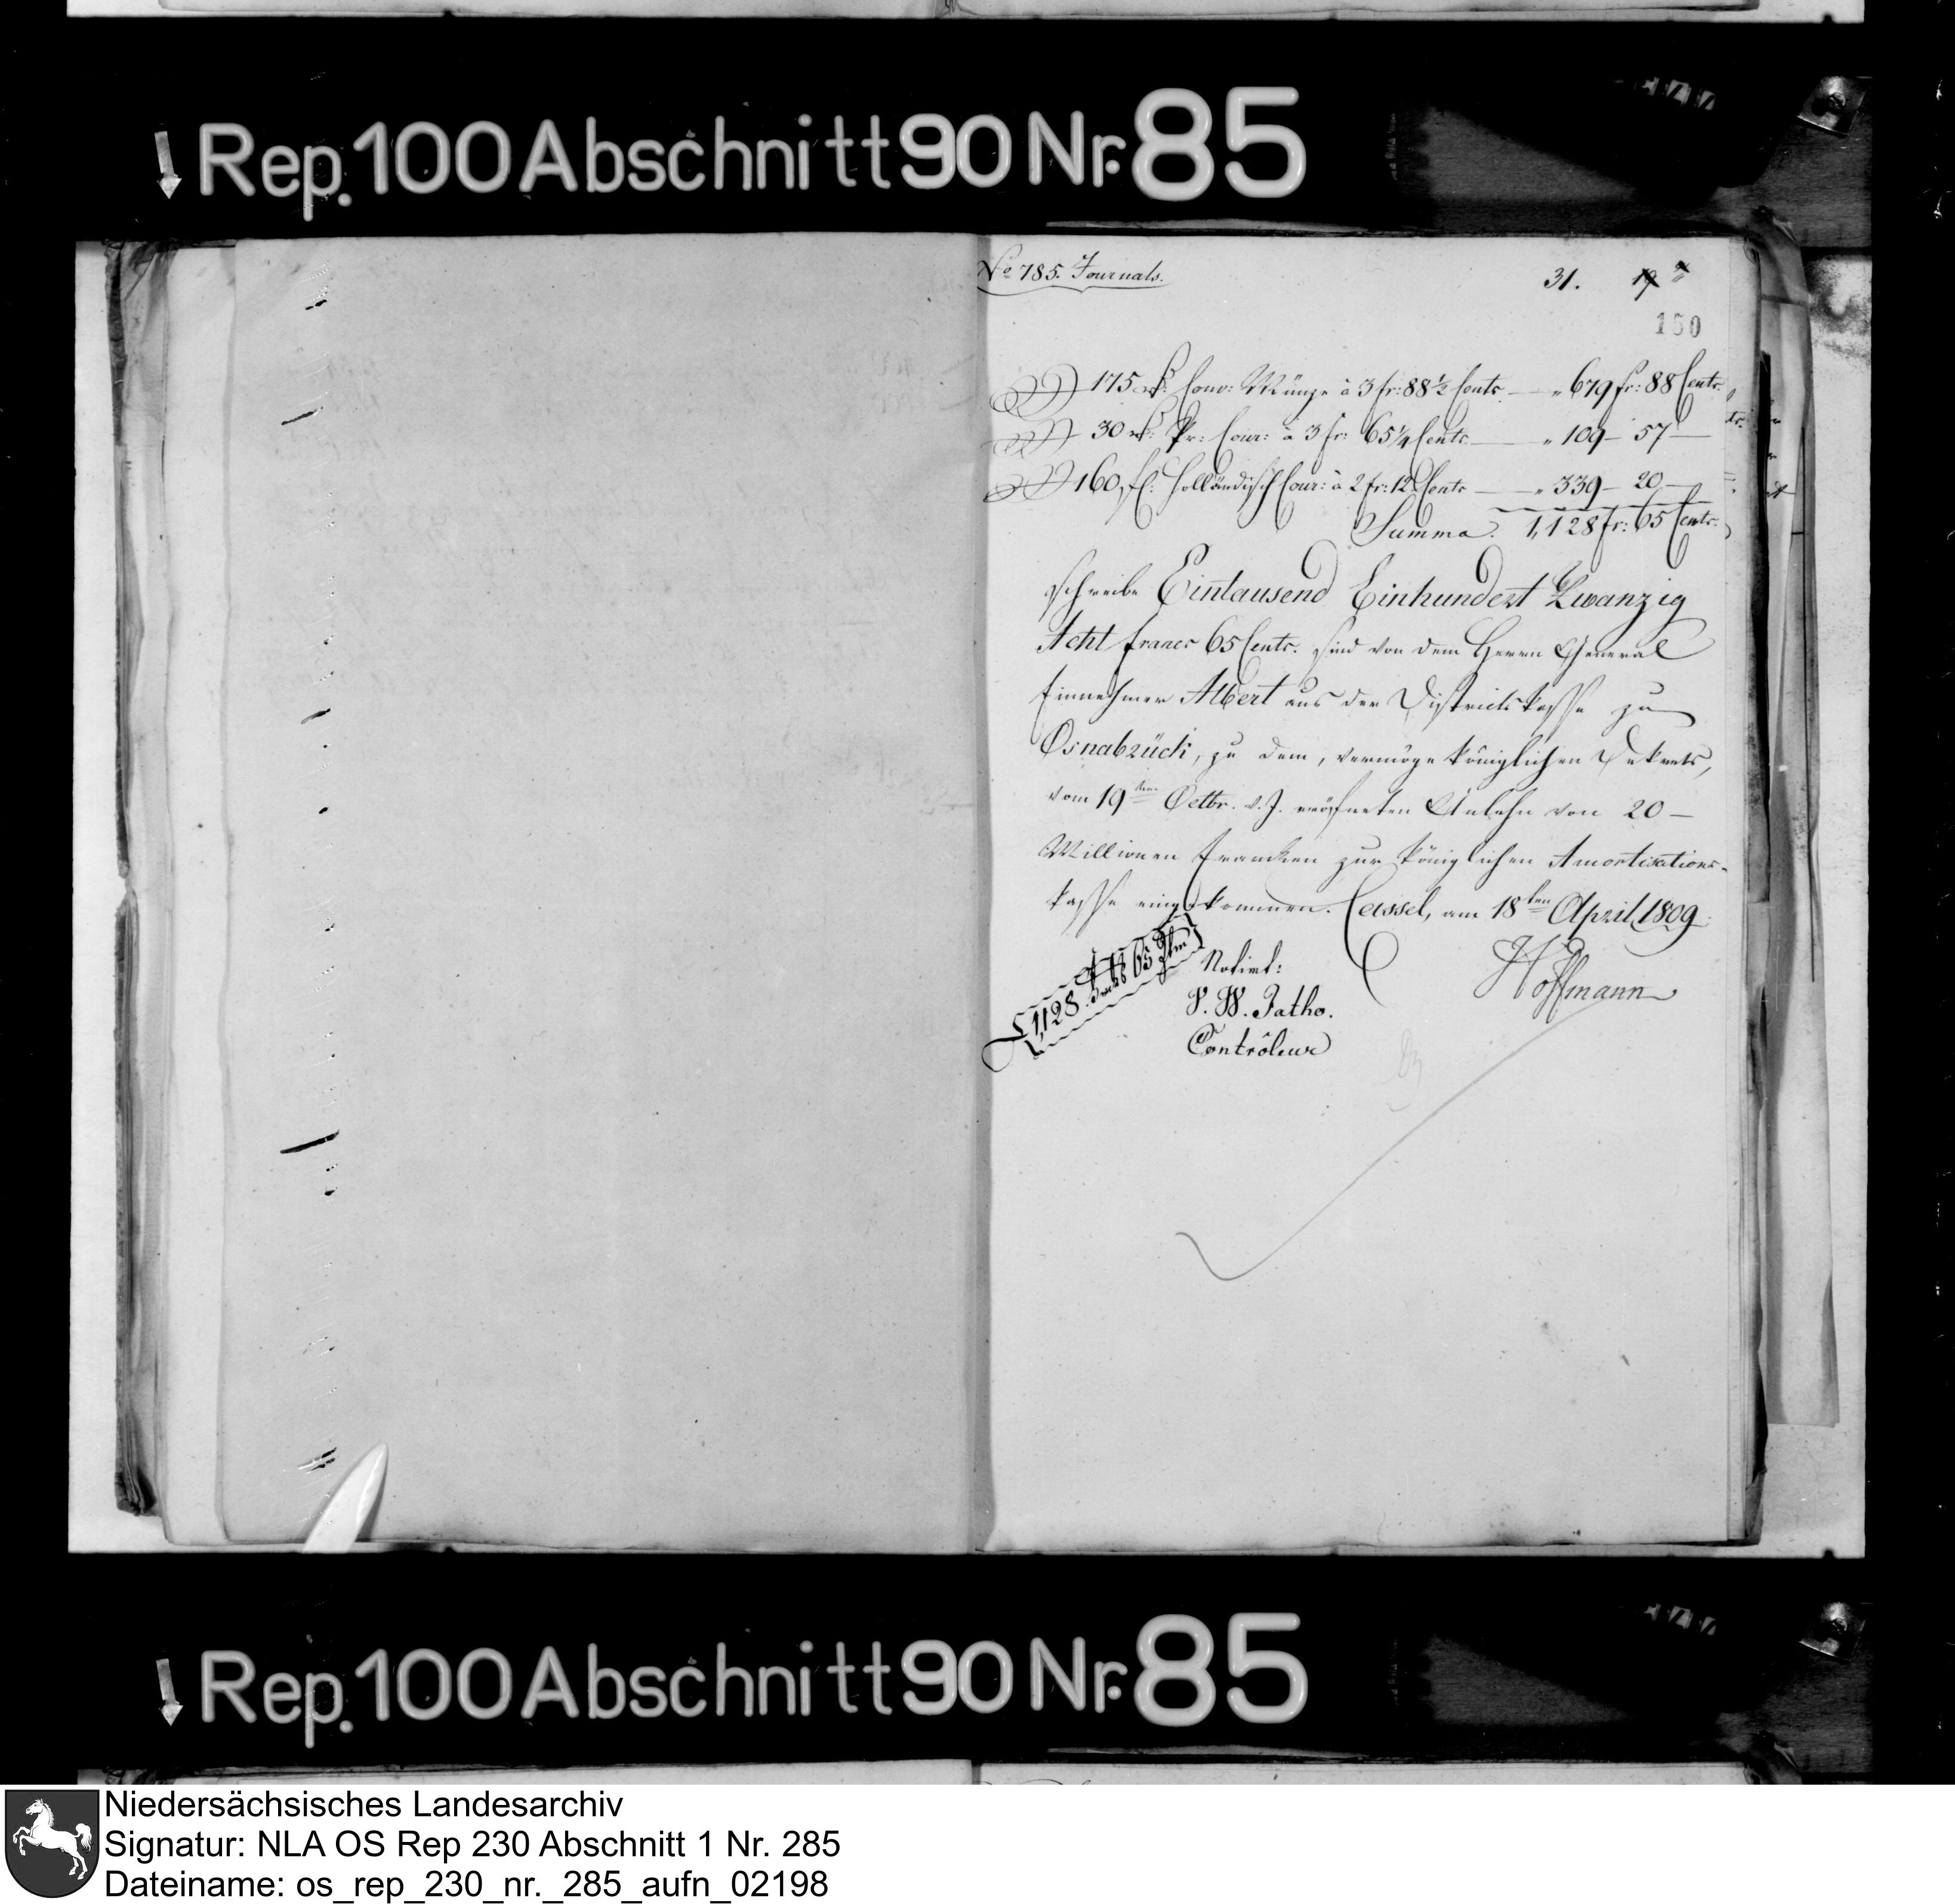 Rep. 100 Abschnitt 90 Nr. 85
No 785. Journals.
31. 19
150
175 rt: Conv: Münze à 3 fr: 88 1/2 Cents — „ 679 fr: 88 Cents.
30 rt: Pr: Cour: à 3 fr: 65 1/4 Cents — „ 109 — 57 —
160 fl: Holländisch Cour: à 2 fr: 12 Cents — „ 339 — 20 —
Summa. 1,128 fr: 65 Cents.
schreibe Eintausend Einhundert Zwanzig
Acht francs 65 Cents. sind von dem Herrn General
Einnehmer Albert aus der Districtskasse zu
Osnabrück, zu dem, vermöge königlichen Dekrets,
vom 19ten Octbr. v. J. eröfneten Anlehn von 20 —
Millionen Francken zur königlichen Amortisations-
kasse eingekommen. Cassel, am 18ten April 1809.
1,128 Francs 65 Ctm
Notirt:
Hoffmann
V. W. Fatho.
Contrôleur
Rep. 100 Abschnitt 90 Nr. 85
Niedersächsisches Landesarchiv
Signatur: NLA OS Rep 230 Abschnitt 1 Nr. 285
Dateiname: os_rep_230_nr._285_aufn_02198